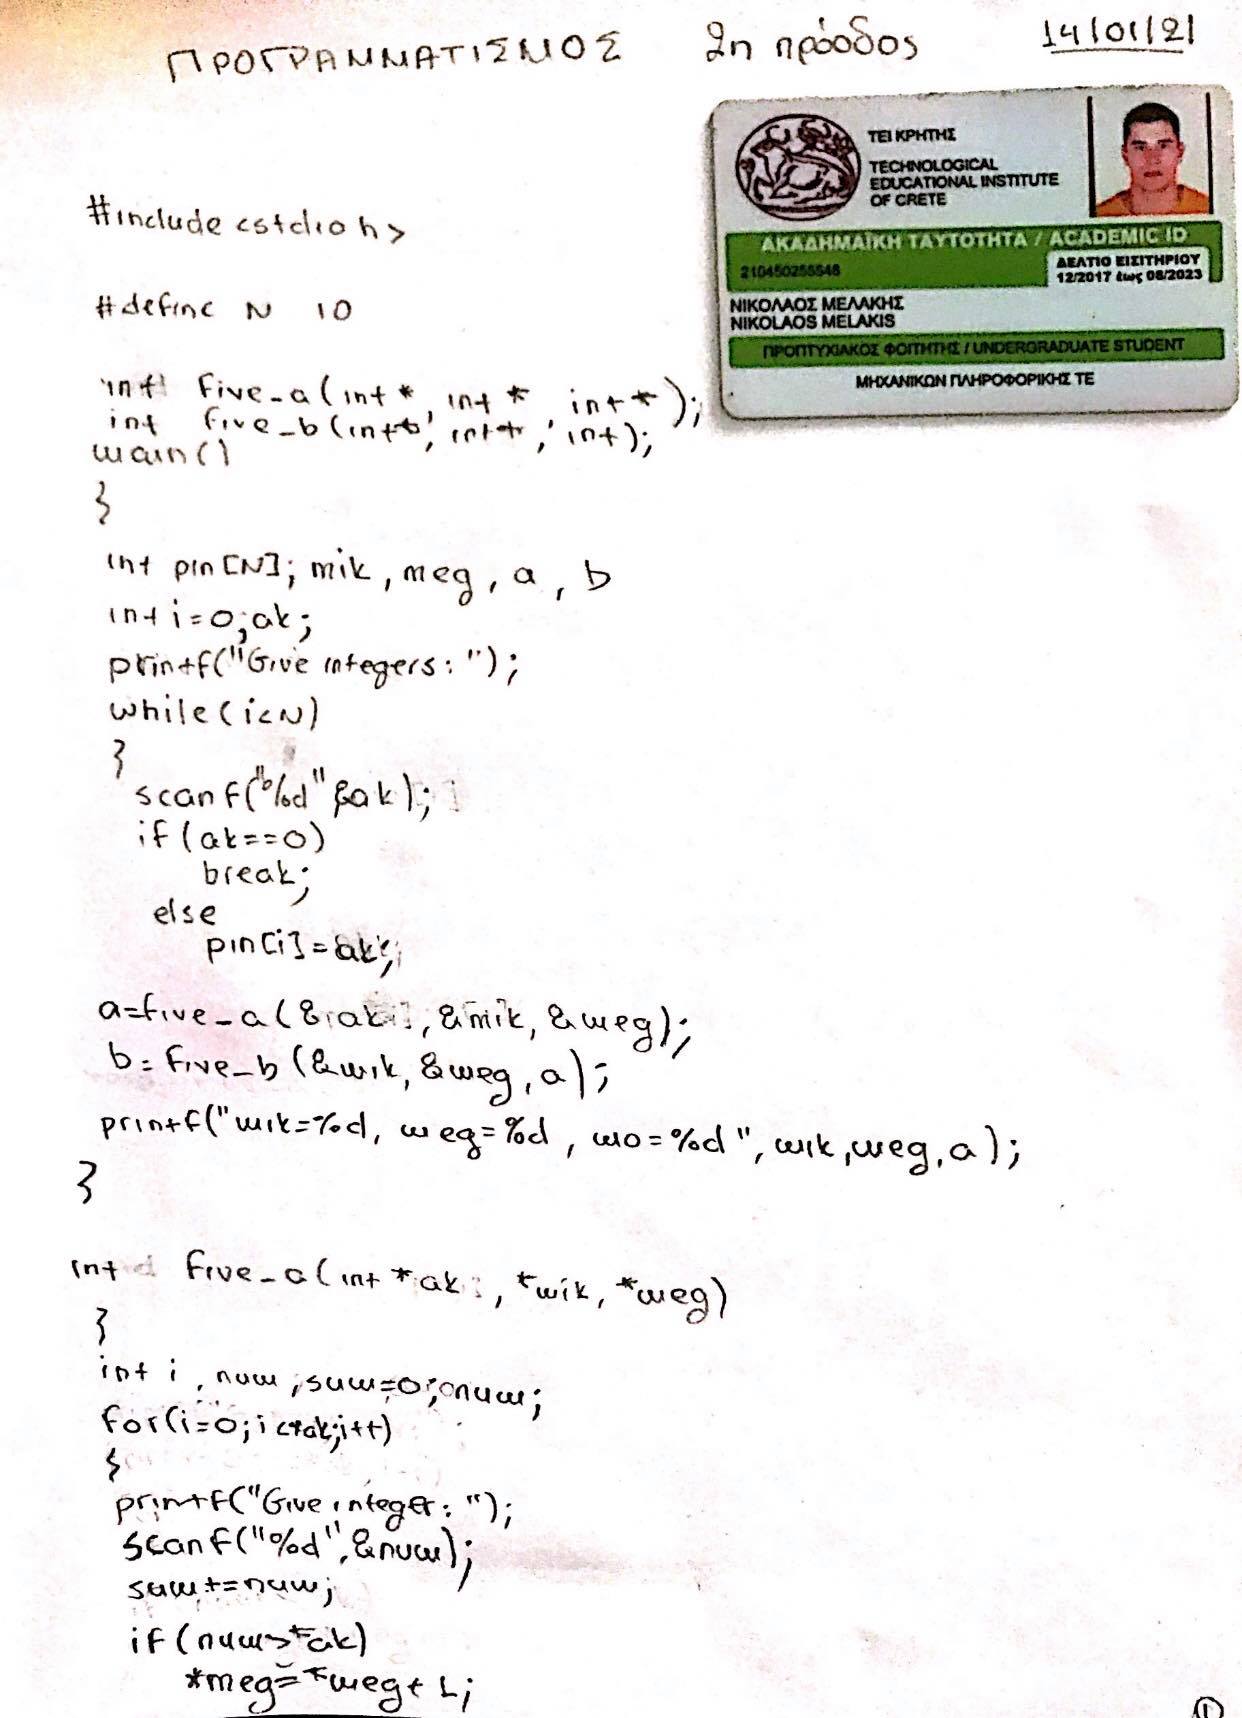 ΠΡΟΓΡΑΜΜΑΤΙΣΜΟΣ 2η πρόοδος 14/01/21
ΤΕΙ ΚΡΗΤΗΣ
TECHNOLOGICAL
EDUCATIONAL INSTITUTE
OF CRETE
ΑΚΑΔΗΜΑΪΚΗ ΤΑΥΤΟΤΗΤΑ / ACADEMIC ID
210450255546
ΔΕΛΤΙΟ ΕΙΣΙΤΗΡΙΟΥ
12/2017 έως 08/2023
ΝΙΚΟΛΑΟΣ ΜΕΛΑΚΗΣ
NIKOLAOS MELAKIS
ΠΡΟΠΤΥΧΙΑΚΟΣ ΦΟΙΤΗΤΗΣ / UNDERGRADUATE STUDENT
ΜΗΧΑΝΙΚΩΝ ΠΛΗΡΟΦΟΡΙΚΗΣ ΤΕ
#include <stdio h>
#define N 10
int five_a(int *, int *, int *);
int five_b(int*, int*, int);
main()
{
int pin[N]; mik, meg, a, b
int i=0;ak;
printf("Give integers: ");
while(i<N)
{
scanf("%d" &ak);
if(ak==0)
break;
else
pin[i]=ak;
a=five_a(&ak, &mik, &meg);
b=five_b(&mik, &meg, a);
printf("mik=%d, meg=%d, mo=%d", mik,meg,a);
}
int five_a(int *ak, *mik, *meg)
{
int i, num, sum=0; num;
for(i=0;i<*ak;i++)
{
printf("Give integer: ");
scanf("%d",&num);
sum+=num;
if(num>*ak)
*meg=*meg+1;
1